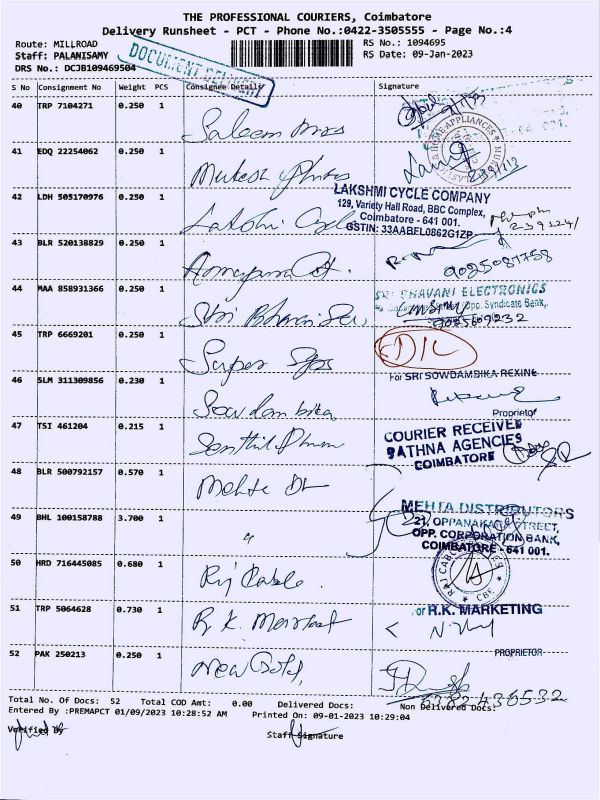 THE PROFESSIONAL COURIERS, Coimbatore
Delivery Runsheet - PCT - Phone No.:0422-3505555 - Page No.:4
Route: MILLROAD
RS No.: 1094695
Staff: PALANISAMY
RS Date: 09-Jan-2023
DRS No.: DCJB109469504
DOCUMENT DELIVERY
S No Consignment No Weight PCS Consignee Details Signature
40 TRP 7104271 0.250 1 Saleem
41 EDQ 22254062 0.250 1 Mukesh
HOME APPLIANCES
42 LDH 505170976 0.250 1 Lakshmi Cycle
LAKSHMI CYCLE COMPANY
129, Variety Hall Road, BBC Complex,
Coimbatore - 641 001.
GSTIN: 33AABFL0862G1ZP
43 BLR 520138829 0.250 1
9025081758
44 MAA 858931366 0.250 1 Shri Bhavani
SRI BHAVANI ELECTRONICS
Opp. Syndicate Bank,
45 TRP 6669201 0.250 1 Super
D/C
46 SLM 311309856 0.230 1 Sowdambika
For SRI SOWDAMBIKA REXINE
Proprietor
47 TSI 461204 0.215 1 Senthil
COURIER RECEIVED
SATHNA AGENCIES
COIMBATORE
48 BLR 500792157 0.570 1 Mehta
49 BHL 100158788 3.700 1 "
MEHTA DISTRIBUTORS
OPPANAKARA STREET,
OPP. CORPORATION BANK,
COIMBATORE - 641 001.
50 HRD 716445085 0.680 1 Raj Cable
51 TRP 5064628 0.730 1 R.K. Market
For R.K. MARKETING
PROPRIETOR
52 PAK 250213 0.250 1 New Gold,
6382436532
Total No. Of Docs: 52 Total COD Amt: 0.00 Delivered Docs: Non Delivered Docs:
Entered By :PREMAPCT 01/09/2023 10:28:52 AM Printed On: 09-01-2023 10:29:04
Verified By
Staff Signature